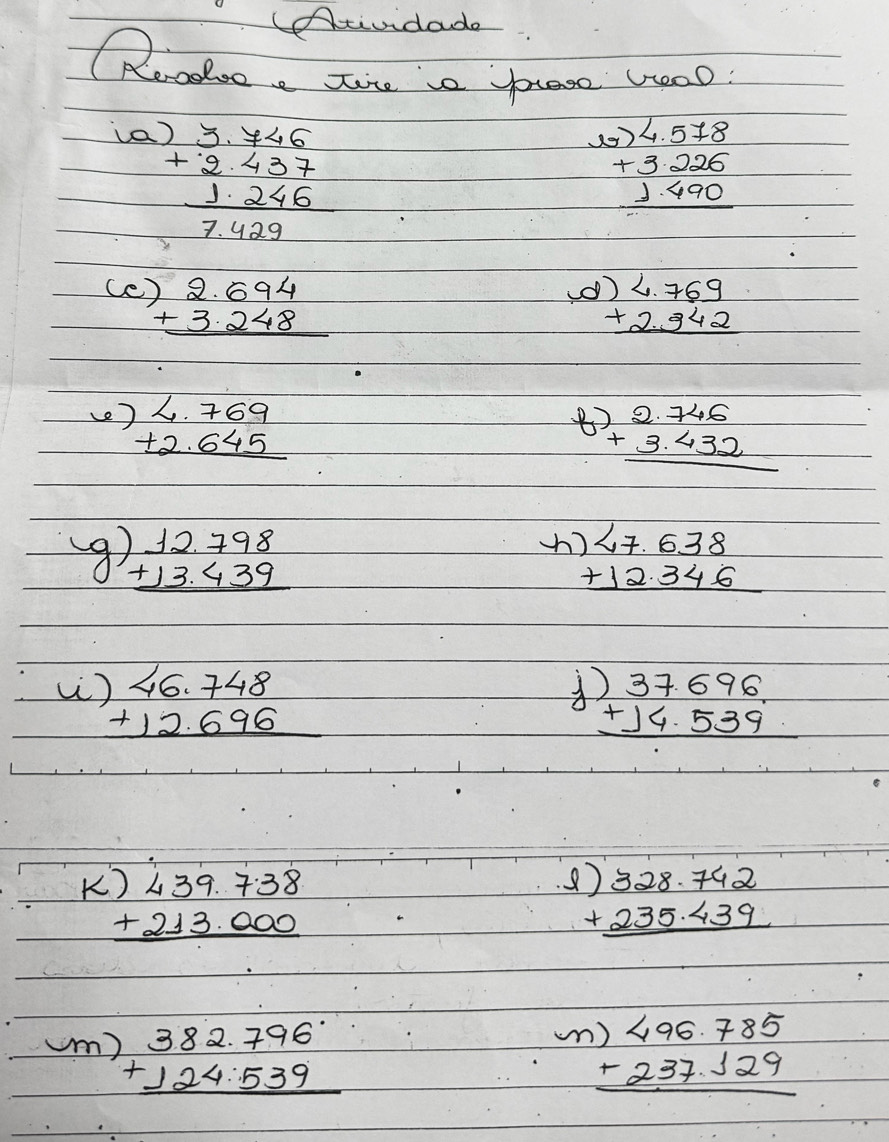 Atividade
Resolva e tire a prova real:
a) 3.746
+ 2.437
1.246
7.429
b) 4.578
+ 3.226
1.490
c) 2.694
+ 3.248
d) 4.769
+ 2.342
e) 4.769
+ 2.645
f) 2.746
+ 3.432
g) 12.798
+ 13.439
h) 47.638
+ 12.346
i) 46.748
+ 12.696
j) 37.696
+ 14.539
K) 439.738
+ 213.000
l) 328.742
+ 235.439
m) 382.796
+ 124.539
n) 496.785
+ 237.129